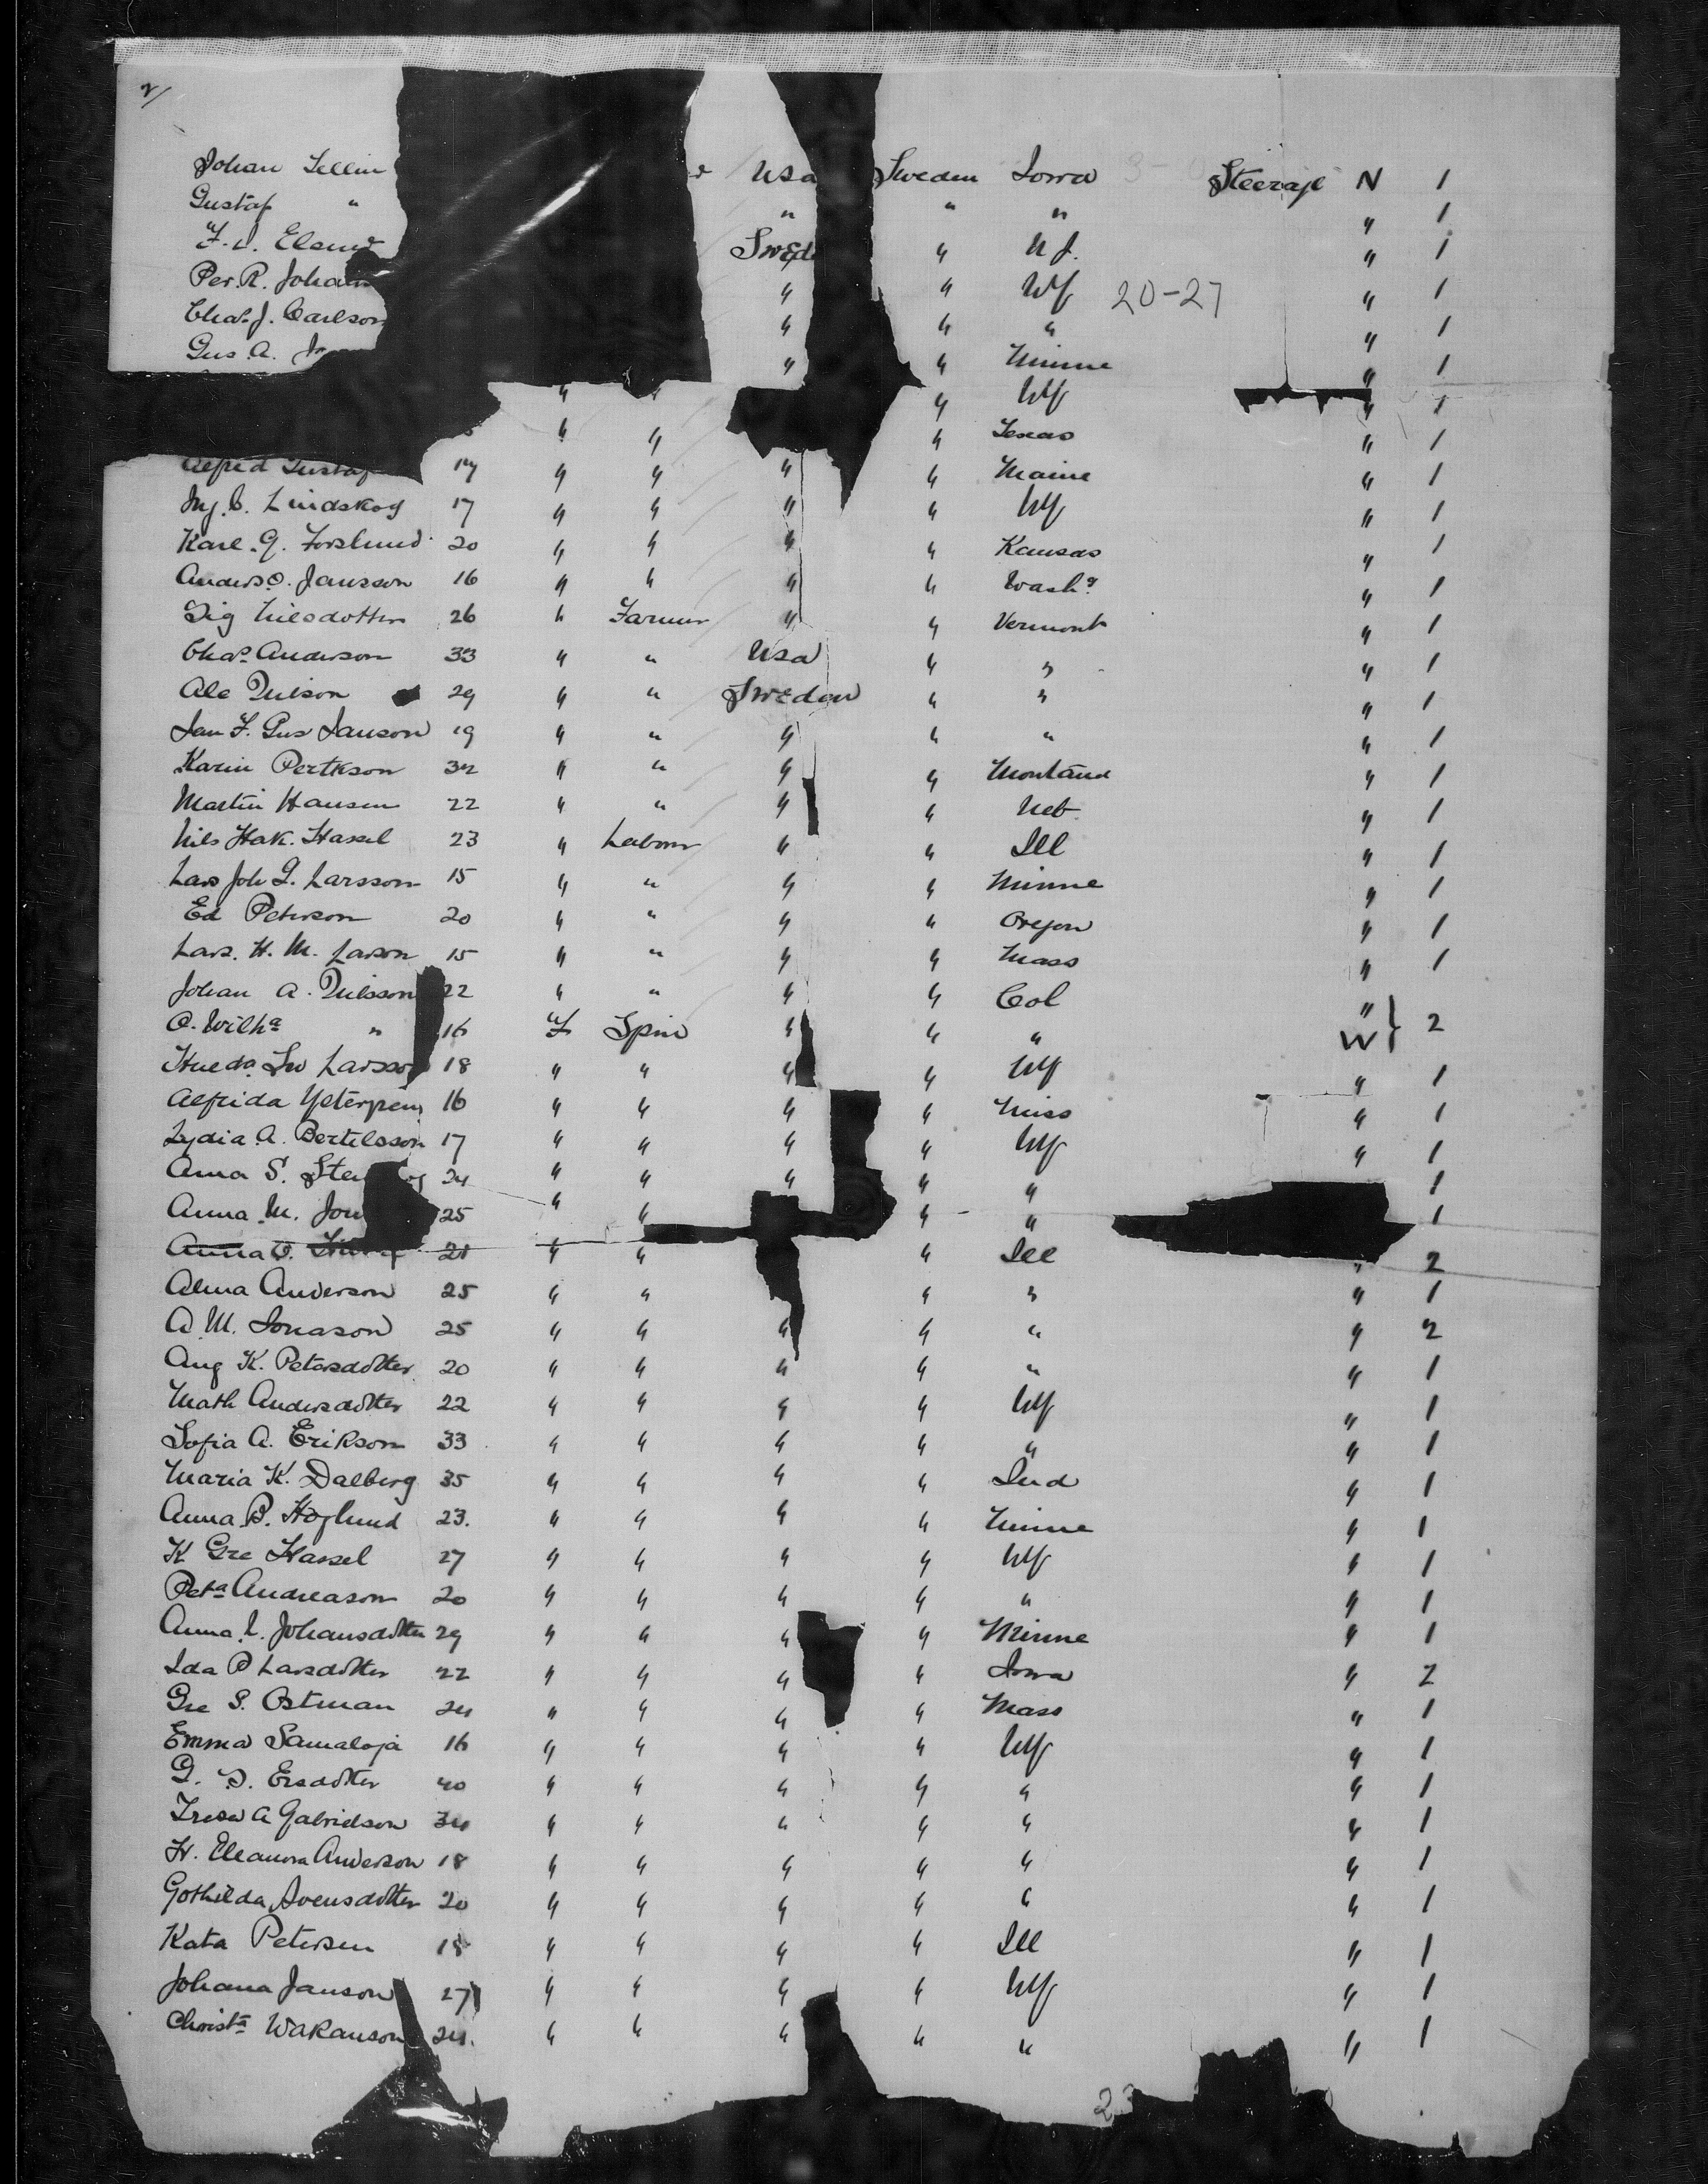 2/
Johan Sellin Usa Sweden Iowa Steerage N 1
Gustaf " " " " " 1
Swed " N.J. " 1
Per. R. Joha " " NY 20-27 " 1
Chas. J. Carlson " " " " 1
Gus. A. " " Minne " 1
" " " NY " 1
" " " Texas " 1
Alfred Gustaf 17 " " " " Maine " 1
Ing. C. Lindskog 17 " " " " NY " 1
Karl. G. Forslund 20 " " " " Kansas " 1
Anders O. Jansson 16 " " " " Washn " 1
Sig Nilsdotter 26 " Farmer " " Vermont " 1
Chas. Anderson 33 " " Usa " " " 1
Ale Nilson 29 " " Sweden " " " 1
Jan F. Gus Janson 19 " " " " " " 1
Karin Pertkson 32 " " " " Montana " 1
Martin Hansen 22 " " " " Neb. " 1
Nils Hak. Hassel 23 " Labour " " Ill " 1
Lars Joh G. Larsson 15 " " " " Minne " 1
Ed Peterson 20 " " " " Oregon " 1
Lars. H. M. Larson 15 " " " " Mass " 1
Johan A. Nilsson 22 " " " " Col "
O. Wilha " 16 F Spin " " " W } 2
Larsson 18 " " " " NY " 1
Alfrida 16 " " " " Miss " 1
Lydia A. Bertilsson 17 " " " " NY " 1
Anna S. 24 " " " " " 1
Anna M. 25 " " " " 1
Anna O. 21 " " " Ill " 2
Alma Anderson 25 " " " " " 1
A. M. Jonason 25 " " " " " " 2
Aug K. Petersdotter 20 " " " " " " 1
Math Andersdotter 22 " " " " NY " 1
Sofia A. Erikson 33 " " " " " " 1
Maria K. Dalberg 35 " " " " Ind " 1
Anna B. Hoglund 23. " " " " Minne " 1
K Gre Hassel 27 " " " " NY " 1
Peta Andreason 20 " " " " " " 1
Anna L. Johansdotter 29 " " " " Minne " 1
Ida P Larsdotter 22 " " " " Iowa " 2
Gre S. Ostman 24 " " " " Mass " 1
Emma Samaloja 16 " " " " NY " 1
G. S. Ersdotter 40 " " " " " " 1
Tresa A Gabrielson 34 " " " " " " 1
H. Eleanora Anderson 18 " " " " " " 1
Gothilda Svensdotter 20 " " " " " " 1
Kata Petersen 18 " " " " Ill " 1
Johana Janson 27 " " " " NY " 1
Christa Wakanson 24. " " " " " " 1
23